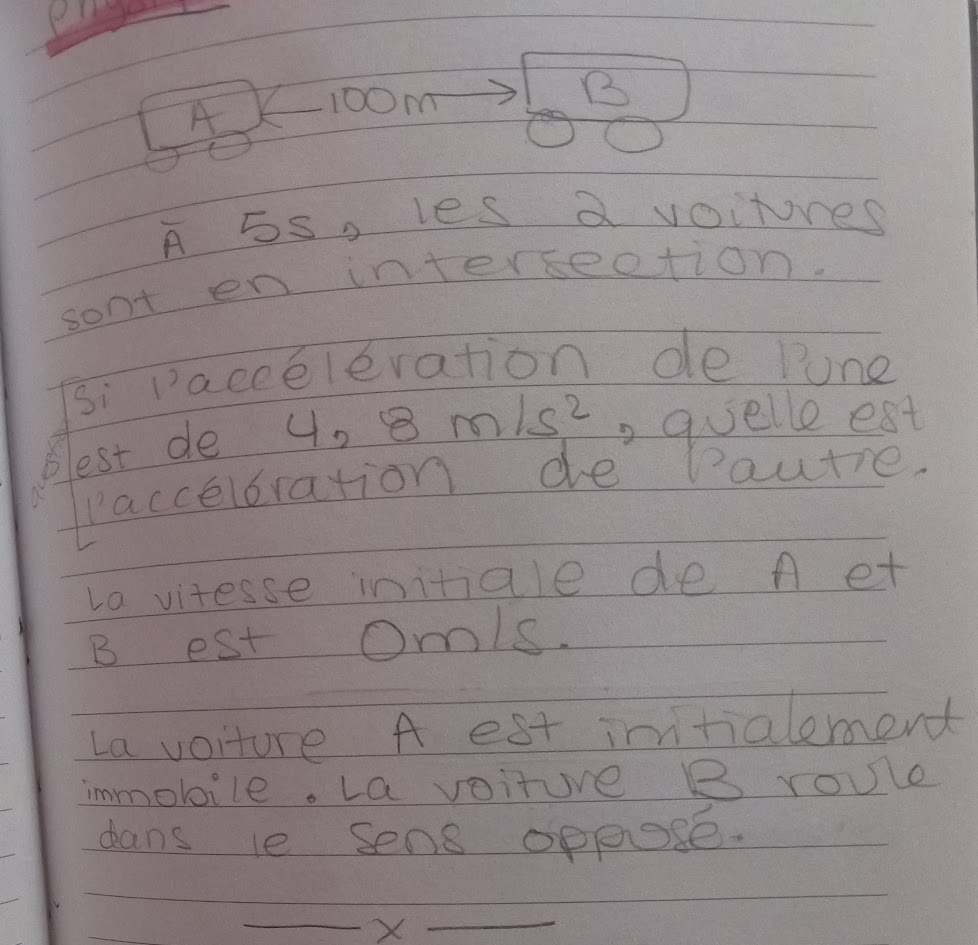 A ←100m→ B
À 5s, les 2 voitures
sont en intersection.
Si l'accélération de l'une
est de 4,8 m/s², quelle est
l'accélération de l'autre.
La vitesse initiale de A et
B est 0m/s.
La voiture A est initialement
immobile. La voiture B roule
dans le sens opposé.
x